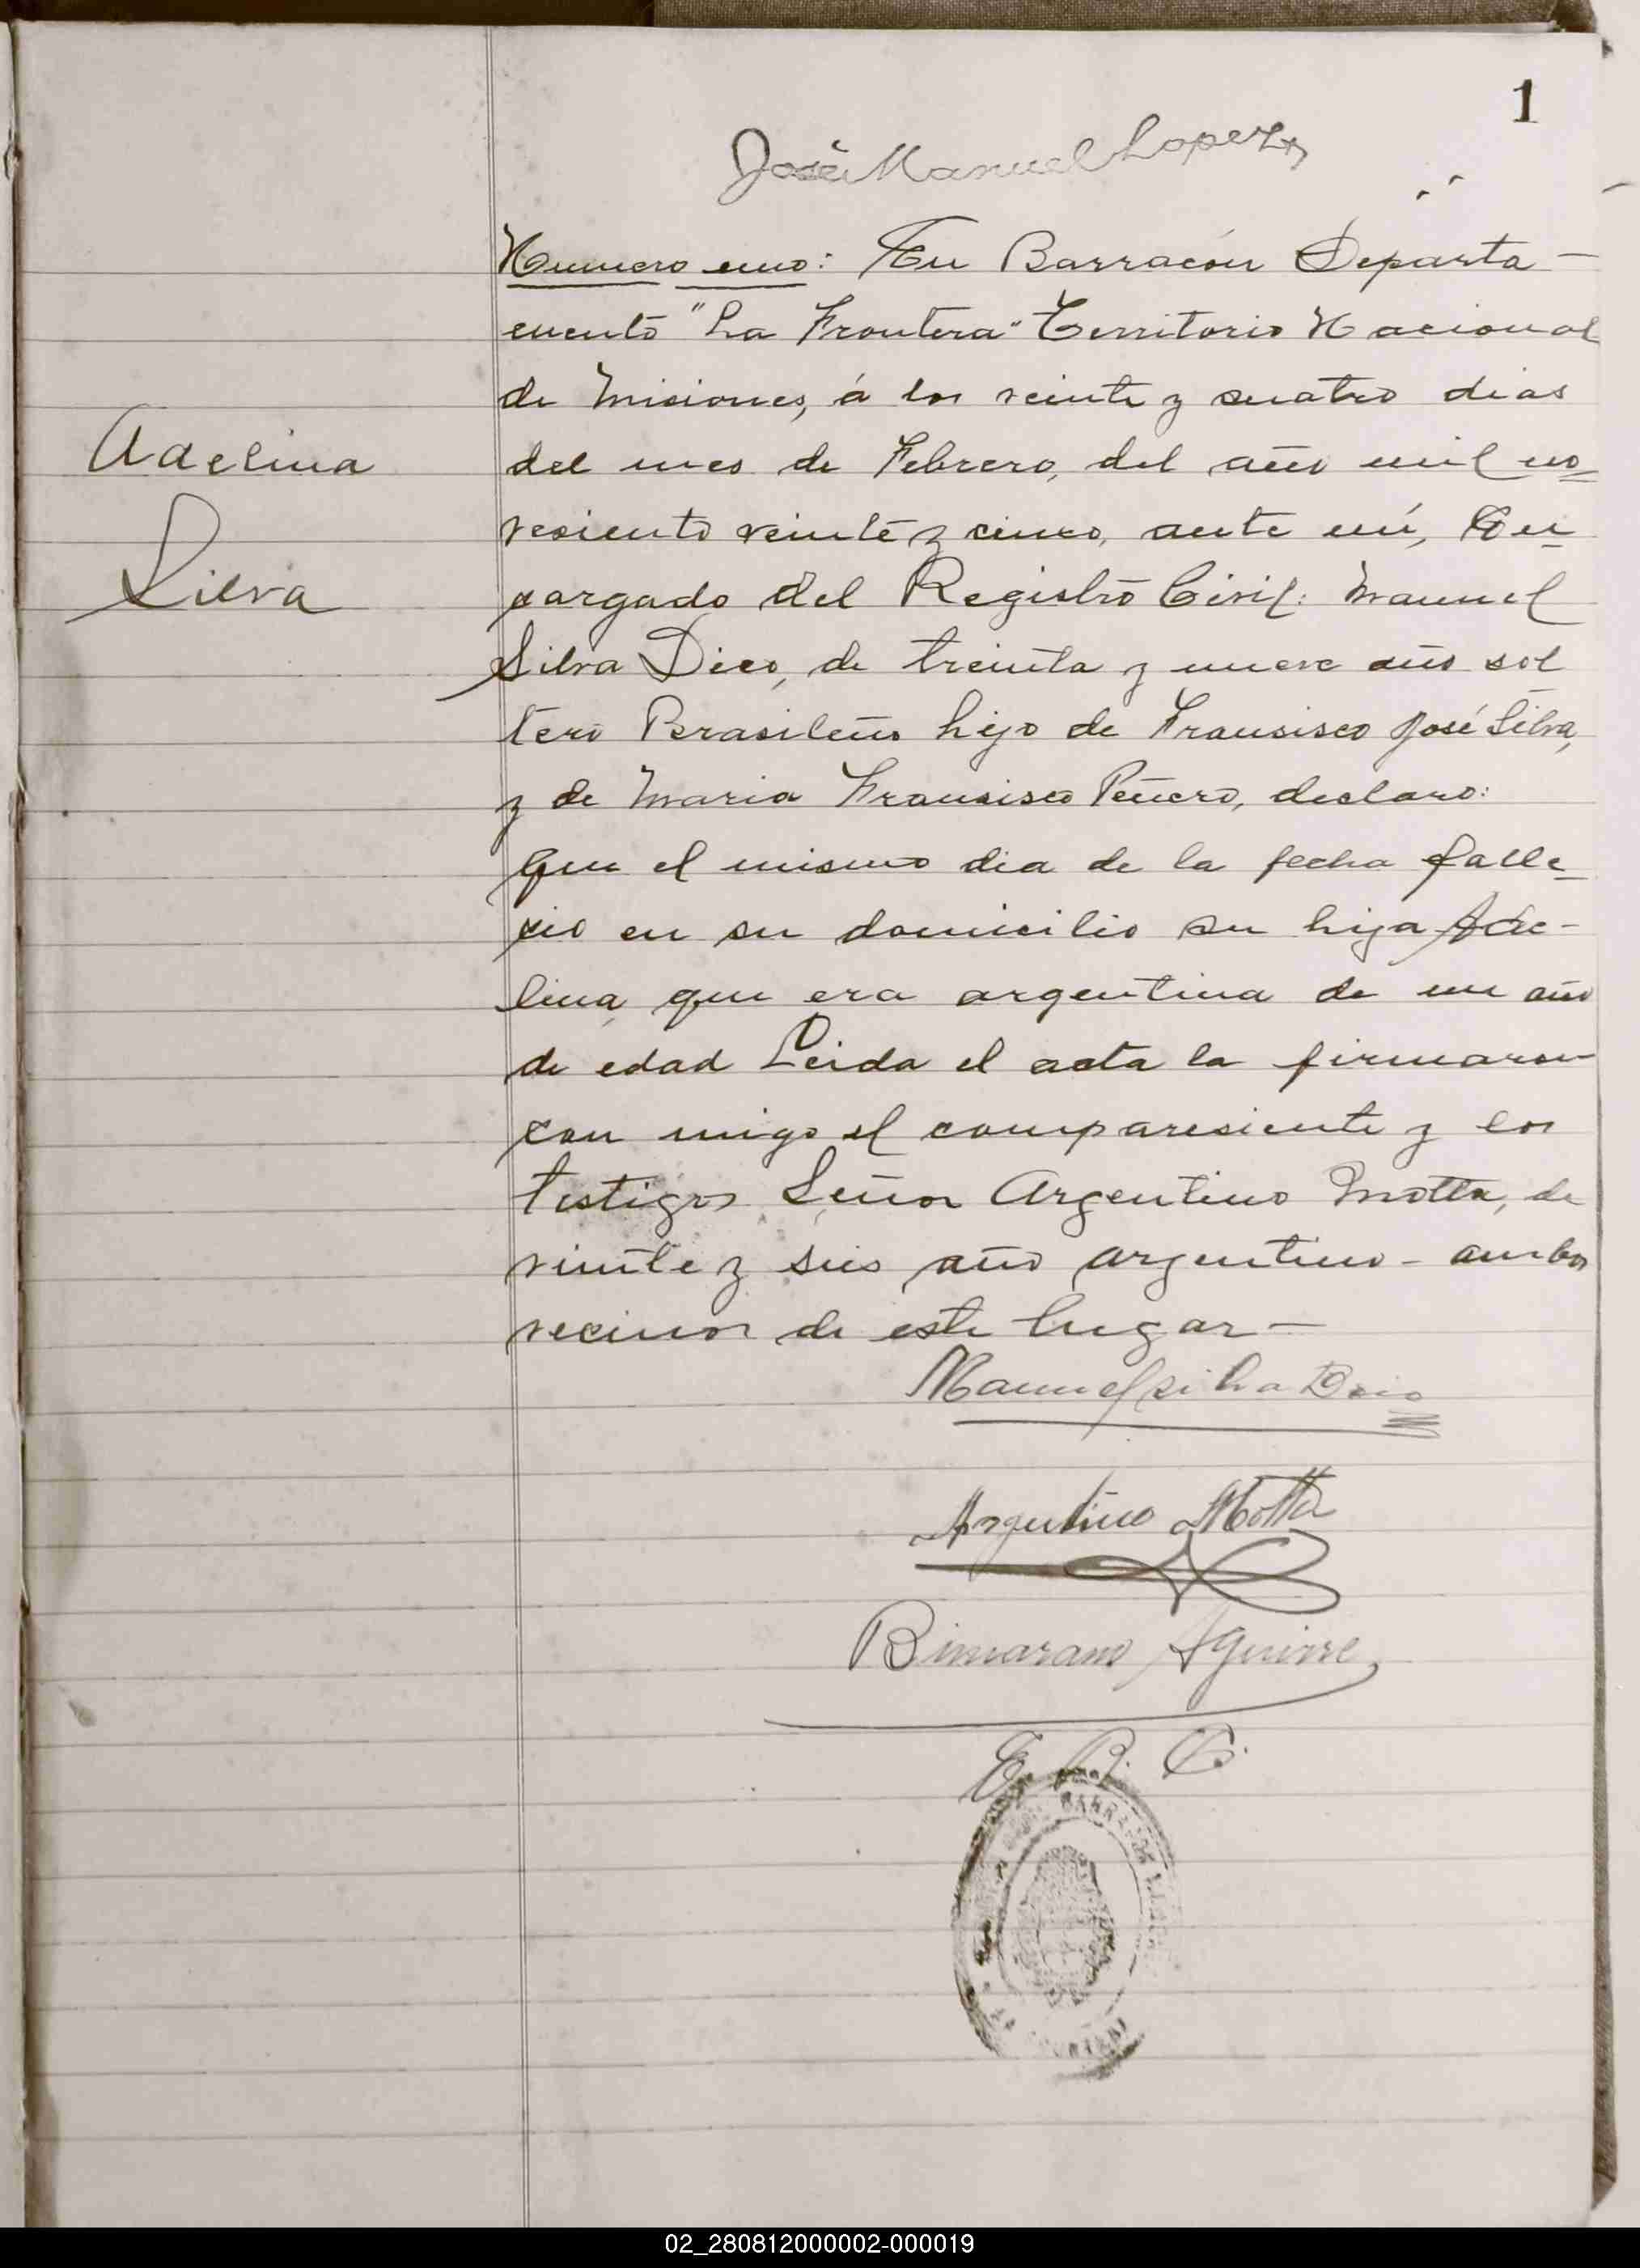 1
José Manuel Lopez
Numero uno: En Barracón Departa-
mento "La Frontera" Territorio Nacional
de Misiones, á los veinte y cuatro dias
Adelina
del mes de Febrero, del año mil no-
vesiento veinte y cinco, ante mí, En-
Silva
cargado del Registro Civil: Manuel
Silva Dico, de treinta y nueve año sol
tero Brasileño hijo de Fransisco José Silva,
y de Maria Fransisco Peñero, declaro:
Que el mismo dia de la fecha falle-
cio en su domicilio su hija Ade-
lina, que era argentina de un año
de edad Leida el acta la firmaron
con migo el comparesiente y los
testigos Señor Argentino Motta, de
veinte y seis año argentino - ambos
vecinos de este lugar-
Manuel silva
Argentino Motta
Aguirre
E. R. C.
02_280812000002-000019